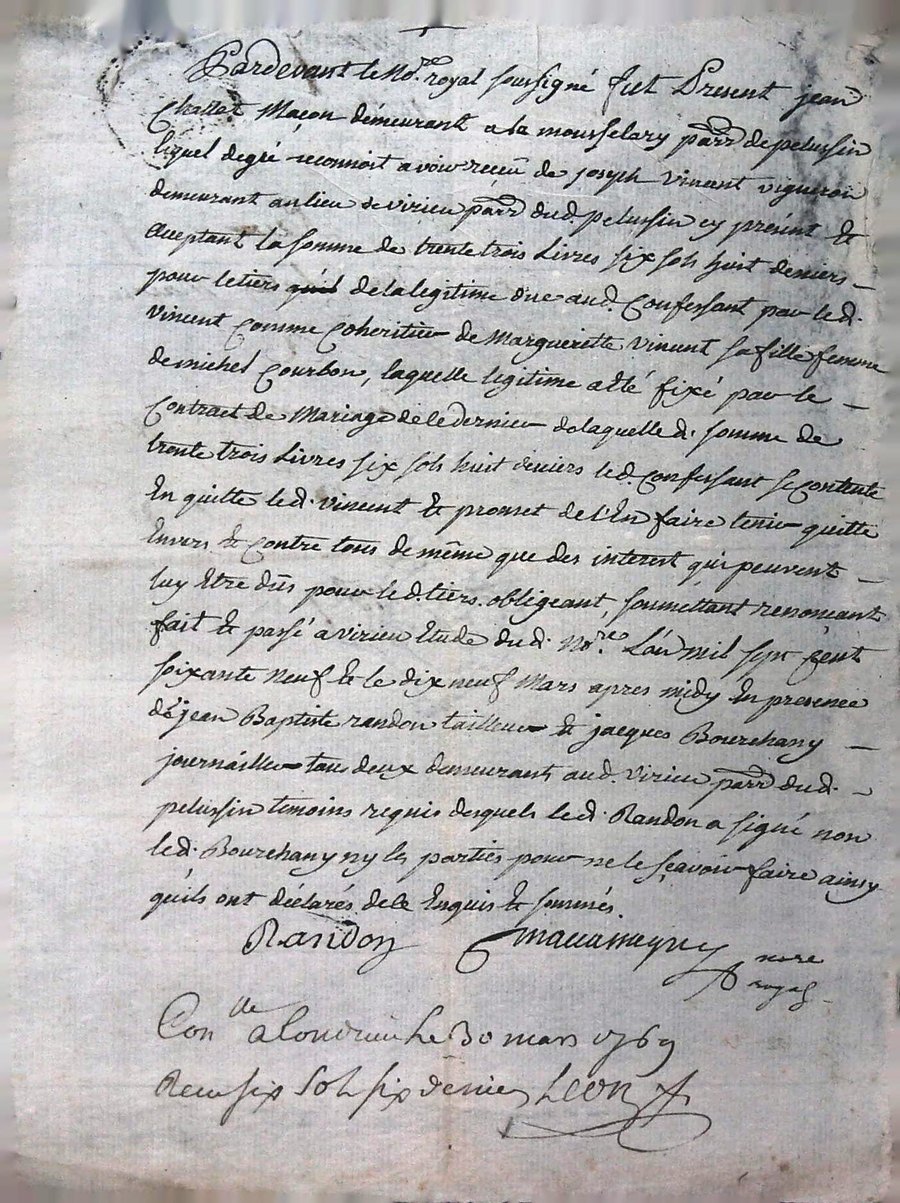 Pardevant le No.re royal soussigné fut Present jean
Chattet Maçon démeurant a la mousselary parr de pelussin
lequel degré reconnoit avoir receû de joseph vincent vigneron
demeurant au lieu de virieu parr dud. pelussin cy présent &
acceptant la somme de trente trois Livres six sols huit deniers
pour le tiers de la legitime due aud. Confessant par led.
vincent comme coheritier de Margueritte vincent sa fille femme
de michel Courbon, laquelle legitime a été fixé par le
Contract de Mariage de le dernier de laquelle d. somme de
trente trois Livres six sols huit deniers led. Confessant se contente
En quitte led. vincent & promet de l'En faire tenir quitte
Envers & contre tous de même que des interest qui peuvent
luy Etre dûs pour led. tiers. obligeant, soumettant renonçant
fait & passé a virieu Etude dud. No.re L'an mil sept cent
soixante neuf & le dix neuf Mars apres midy En presence
de jean Baptiste randon tailleur & jacques Bourchany
journaillier tous deux demeurants aud. virieu parr dud.
pelussin temoins requis desquels led. Randon a signé non
led. Bourchany ny les parties pour ne le sçavoir faire ainsy
qu'ils ont déclarés de ce Enquis & sommés.
Randon
nore
royal
Con lle a Condrieu le 30 mars 1769
Receu six Sols six deniers Leon